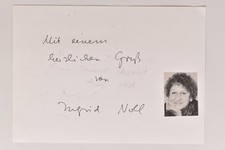 Mit einem
herzlichen Gruß
von
Ingrid Noll